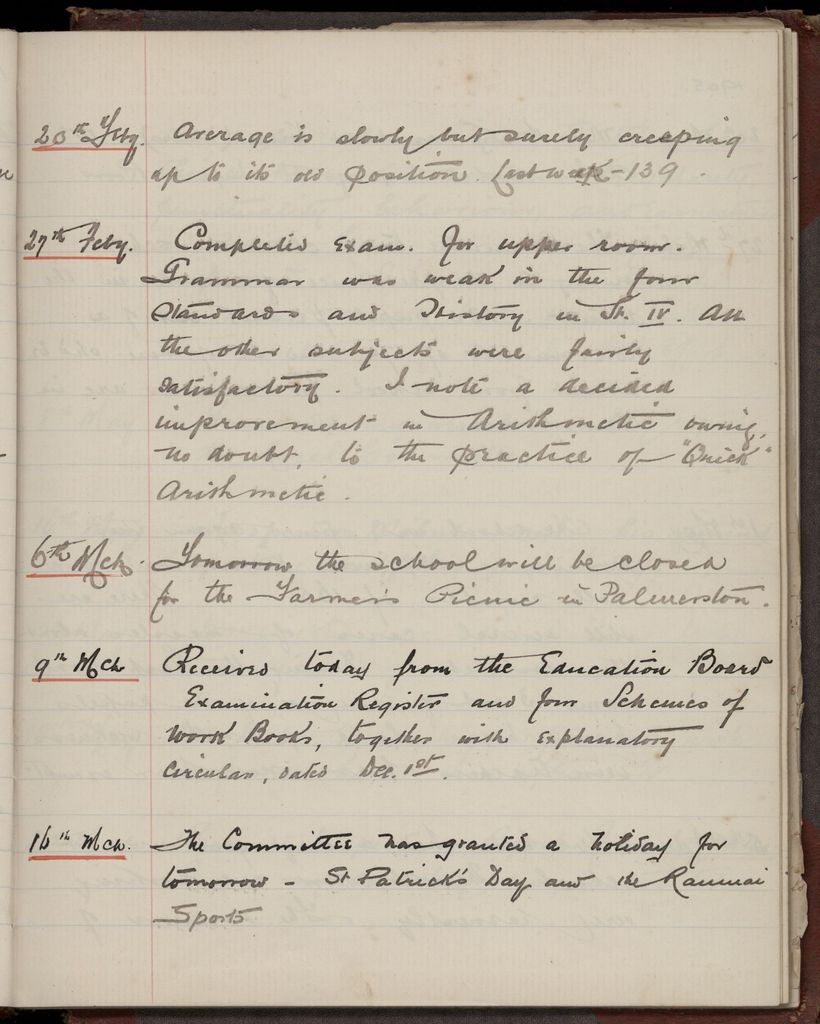 20th Feby. Average is slowly but surely creeping
up to its old position. Last week – 139.
27th Feby. Completed Exam. for upper room.
Grammar was weak in the four
standards and History in St. IV. All
the other subjects were fairly
satisfactory. I note a decided
improvement in Arithmetic owing,
no doubt, to the practice of "Quick"
Arithmetic.
6th Mch. Tomorrow the school will be closed
for the Farmers Picnic in Palmerston.
9th Mch Received today from the Education Board
Examination Register and four Schemes of
Work Books, together with explanatory
circular, dated Dec. 1st.
16th Mch. The Committee has granted a holiday for
tomorrow – St Patrick's Day and the Raumai
Sports